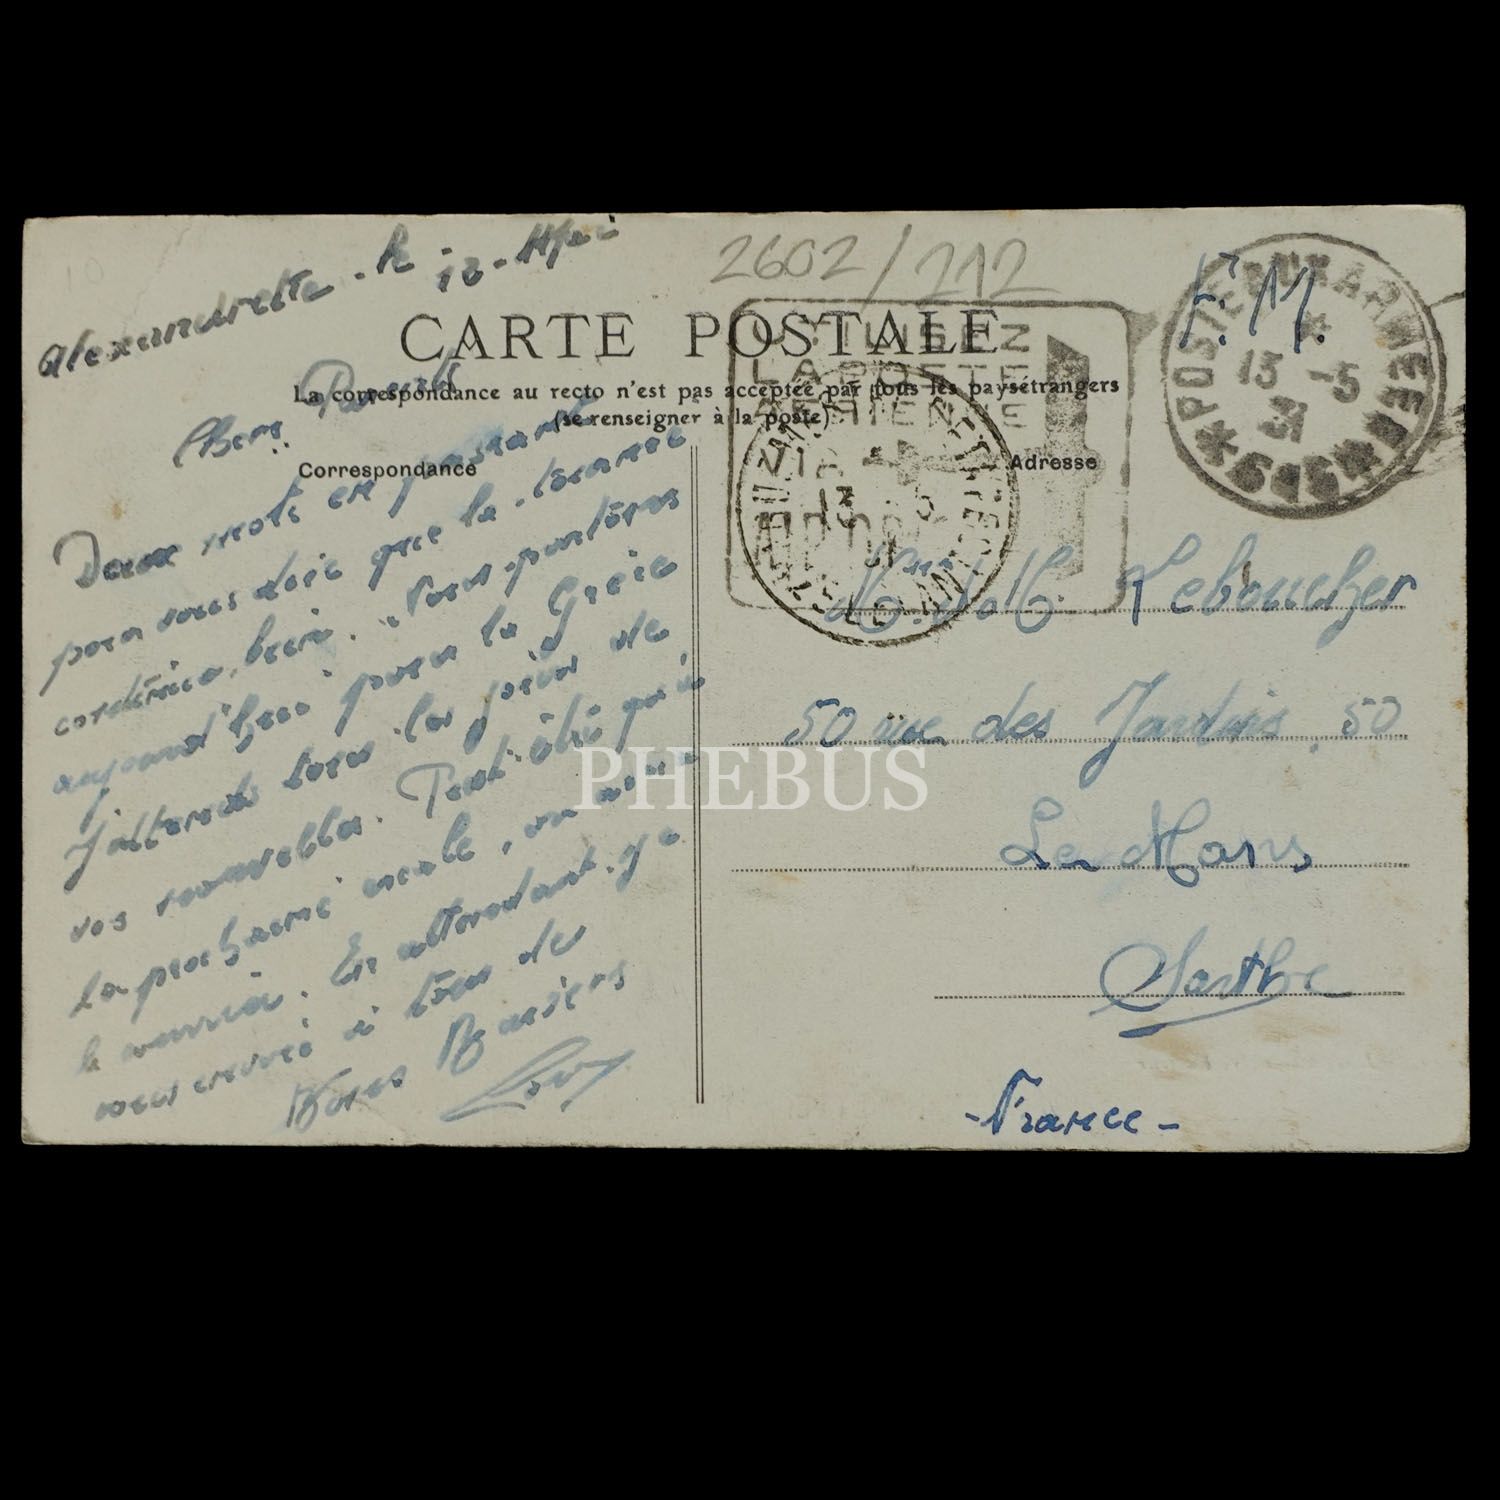 Alexandrette. le 12. Mai
2602/212
F. M.
CARTE POSTALE
La correspondance au recto n'est pas acceptée par tous les paysétrangers
(se renseigner à la poste)
Correspondance
Adresse
Chers Parents
Deux mots en passant
pour vous dire que la tournée
continue bien. Nous partons
aujourd'hui pour la Grèce
J'attends tous les jours de
vos nouvelles. Peut-être qu'à
la prochaine escale, on aura
le courrier. En attendant je
vous envoie à tous de
Bons Baisers
UTILISEZ
LA POSTE
AERIENNE
VIA
POSTE AUX ARMEES
13 -5
31
* 615 *
13 5
31
Leboucher
50 rue des Jardins, 50
Le Mans
Sarthe
- France -
PHEBUS